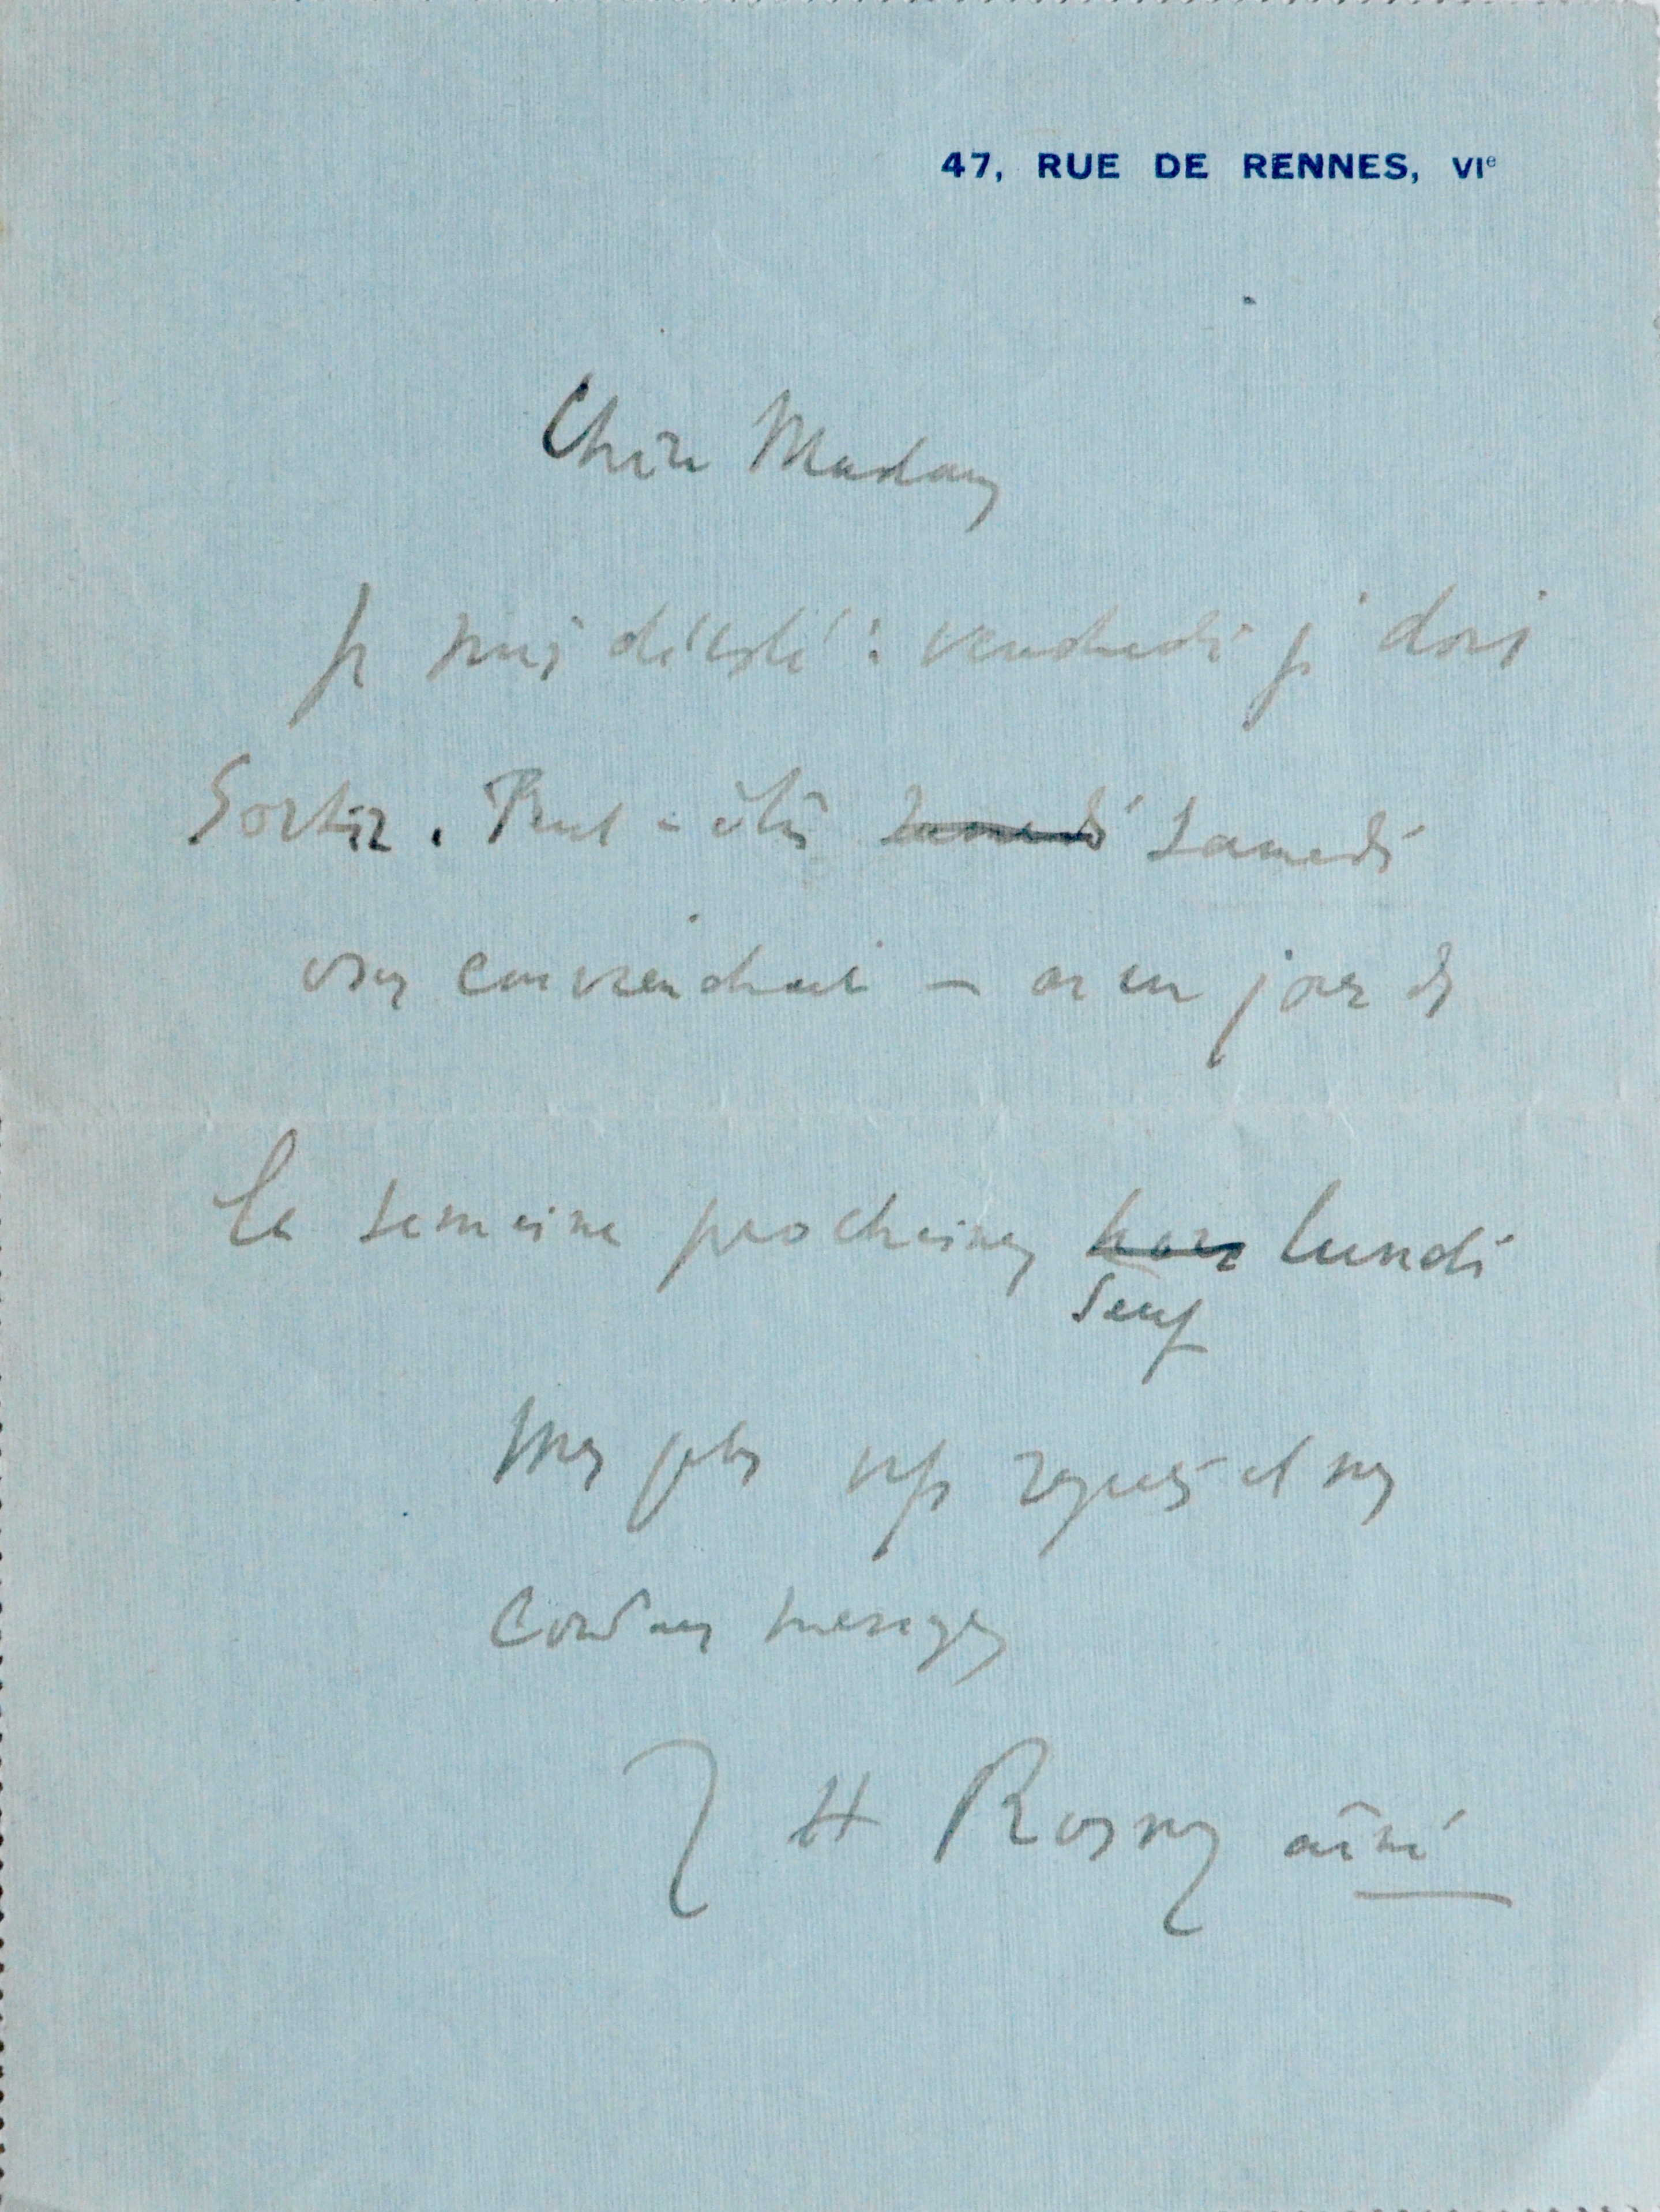 47, RUE DE RENNES, VIe
Chère Madame
Je suis désolé : vendredi je dois
Sortir. Peut-être samedi samedi
vous conviendrait — ou un jour de
la semaine prochaine, hors lundi
sauf
Mes plus vifs regrets et mes
Cordiaux messages
J H Rosny aîné